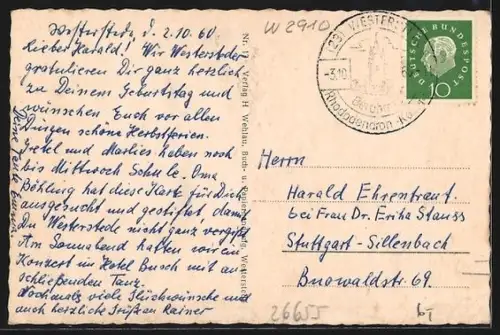 W 2910
Westerstede, d. 2.10.60
Lieber Harald! Wir Westersteder
gratulieren Dir ganz herzlich
zu Deinem Geburtstag und
wünschen Euch vor allen
Dingen schöne Herbstferien.
Gretel und Marlies haben noch
bis Mittwoch Schule. Oma
Böhling hat diese Karte für Dich
ausgesucht und gestiftet, damit
Du Westerstede nicht ganz vergißt
Am Sonnabend hatten wir ein
Konzert im Hotel Busch mit an-
schließenden Tanz.
Nochmals viele Glückwünsche und
auch herzliche Grüße an Rainer
Deine
Nr. 17 Verlag H. Wehlau, Buch- u. Westerstede
(23) WESTERSTEDE
-3.10.
Rhododendron
DEUTSCHE BUNDESPOST
10
Herrn
Harald Ehrentraut
bei Frau Dr. Erika Stauss
Stuttgart-Sillenbach
Buowaldstr. 69.
26655